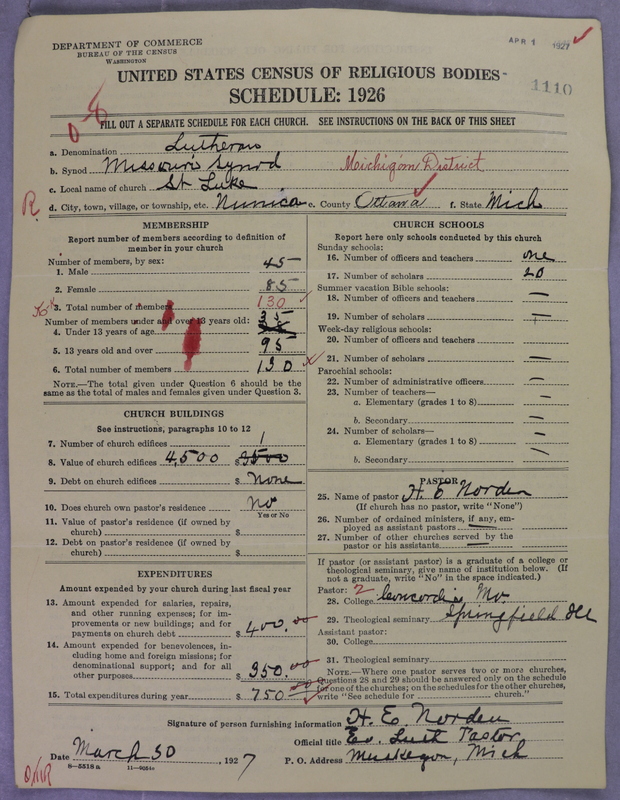 DEPARTMENT OF COMMERCE
BUREAU OF THE CENSUS
WASHINGTON
APR 1 1927
UNITED STATES CENSUS OF RELIGIOUS BODIES
1110
SCHEDULE: 1926
FILL OUT A SEPARATE SCHEDULE FOR EACH CHURCH. SEE INSTRUCTIONS ON THE BACK OF THIS SHEET
a. Denomination Lutheran
b. Synod Missouri Synod Michigan District
c. Local name of church St Luke
R. d. City, town, village, or township, etc. Nunica e. County Ottawa f. State Mich
MEMBERSHIP
Report number of members according to definition of
member in your church
Number of members, by sex:
1. Male 45
2. Female 85
3. Total number of members 130
Number of members under and over 13 years old:
4. Under 13 years of age 35
5. 13 years old and over 95
6. Total number of members 130
NOTE.—The total given under Question 6 should be the
same as the total of males and females given under Question 3.
CHURCH BUILDINGS
See instructions, paragraphs 10 to 12
7. Number of church edifices 1
8. Value of church edifices 4,500 $ 3500
9. Debt on church edifices $ None
10. Does church own pastor's residence No
Yes or No
11. Value of pastor's residence (if owned by
church) $
12. Debt on pastor's residence (if owned by
church) $
EXPENDITURES
Amount expended by your church during last fiscal year
13. Amount expended for salaries, repairs,
and other running expenses; for im-
provements or new buildings; and for
payments on church debt $ 400.00
14. Amount expended for benevolences, in-
cluding home and foreign missions; for
denominational support; and for all
other purposes $ 350.00
15. Total expenditures during year $ 750.00
CHURCH SCHOOLS
Report here only schools conducted by this church
Sunday schools:
16. Number of officers and teachers one
17. Number of scholars 20
Summer vacation Bible schools:
18. Number of officers and teachers —
19. Number of scholars —
Week-day religious schools:
20. Number of officers and teachers
21. Number of scholars —
Parochial schools:
22. Number of administrative officers —
23. Number of teachers—
a. Elementary (grades 1 to 8) —
b. Secondary —
24. Number of scholars—
a. Elementary (grades 1 to 8) —
b. Secondary —
PASTOR
25. Name of pastor H. E. Norden
(If church has no pastor, write "None")
26. Number of ordained ministers, if any, em-
ployed as assistant pastors —
27. Number of other churches served by the
pastor or his assistants —
If pastor (or assistant pastor) is a graduate of a college or
theological seminary, give name of institution below. (If
not a graduate, write "No" in the space indicated.)
Pastor: 2
28. College Concordia Mo
29. Theological seminary Springfield Ill
Assistant pastor:
30. College
31. Theological seminary
NOTE.—Where one pastor serves two or more churches,
Questions 28 and 29 should be answered only on the schedule
for one of the churches; on the schedules for the other churches,
write "See schedule for church."
Signature of person furnishing information H. E. Norden
Official title Ev. Luth Pastor
Date March 30, 1927 P. O. Address Muskegon, Mich
8—5518 a 11—9051